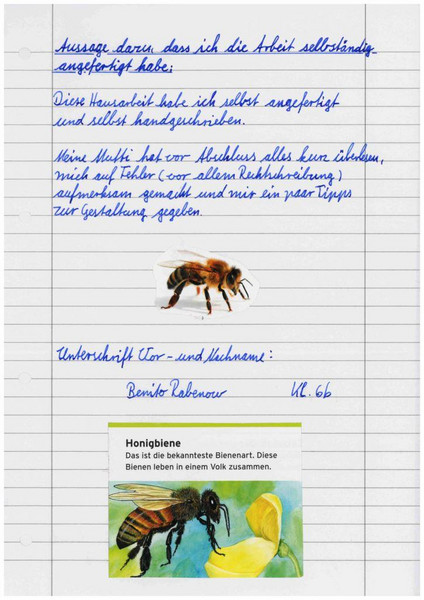 Aussage dazu, dass ich die Arbeit selbständig
angefertigt habe:
Diese Hausarbeit habe ich selbst angefertigt
und selbst handgeschrieben.
Meine Mutti hat vor Abschluss alles kurz überlesen,
mich auf Fehler (vor allem Rechtschreibung)
aufmerksam gemacht und mir ein paar Tipps
zur Gestaltung gegeben.
Unterschrift Vor- und Nachname:
Benito Rabenow Kl. 6b
Honigbiene
Das ist die bekannteste Bienenart. Diese
Bienen leben in einem Volk zusammen.